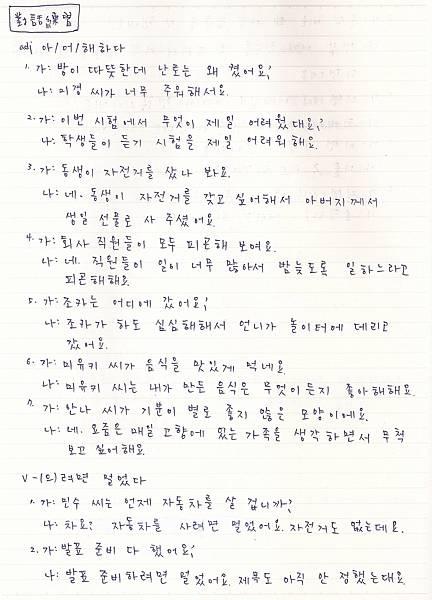 對話練習
adj 아/어/해하다
1. 가: 방이 따뜻한데 난로는 왜 켰어요?
나: 미경 씨가 너무 추워해서요.
2. 가: 이번 시험에서 무엇이 제일 어려웠대요?
나: 학생들이 듣기 시험을 제일 어려워해요.
3. 가: 동생이 자전거를 샀나 봐요.
나: 네. 동생이 자전거를 갖고 싶어해서 아버지께서
생일 선물로 사 주셨어요.
4. 가: 회사 직원들이 모두 피곤해 보여요.
나: 네. 직원들이 일이 너무 많아서 밤늦도록 일하느라고
피곤해해요.
5. 가: 조카는 어디에 갔어요?
나: 조카가 하도 심심해해서 언니가 놀이터에 데리고
갔어요.
6. 가: 미유키 씨가 음식을 맛있게 먹네요.
나: 미유키 씨는 내가 만든 음식은 무엇이든지 좋아해해요.
7. 가: 안나 씨가 기분이 별로 좋지 않은 모양이에요.
나: 네. 요즘은 매일 고향에 있는 가족을 생각하면서 무척
보고 싶어해요.
V-(으)려면 멀었다
1. 가: 민수 씨는 언제 자동차를 살 겁니까?
나: 차요? 자동차를 사려면 멀었어요. 자전거도 없는데요.
2. 가: 발표 준비 다 했어요?
나: 발표 준비하려면 멀었어요. 제목도 아직 안 정했는대요.